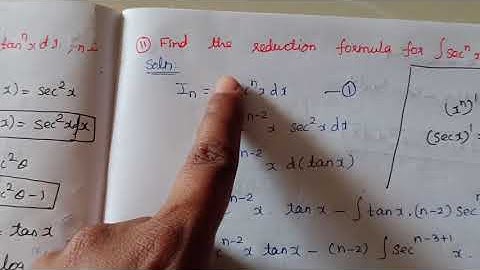 tanⁿx dx, n is
x) = sec²x
x) = sec²x dx
c²θ
c²θ - 1
= tan x
log
⑪ Find the reduction formula for ∫secⁿx
Soln:
Iₙ = secⁿx dx — ①
n-2 x sec²x dx
n-2 x d(tanx)
n-2 x . tanx - ∫tanx.(n-2) sec
n-2 x tanx - (n-2) ∫sec n-3+1 x.
(xⁿ)'
(secx)'